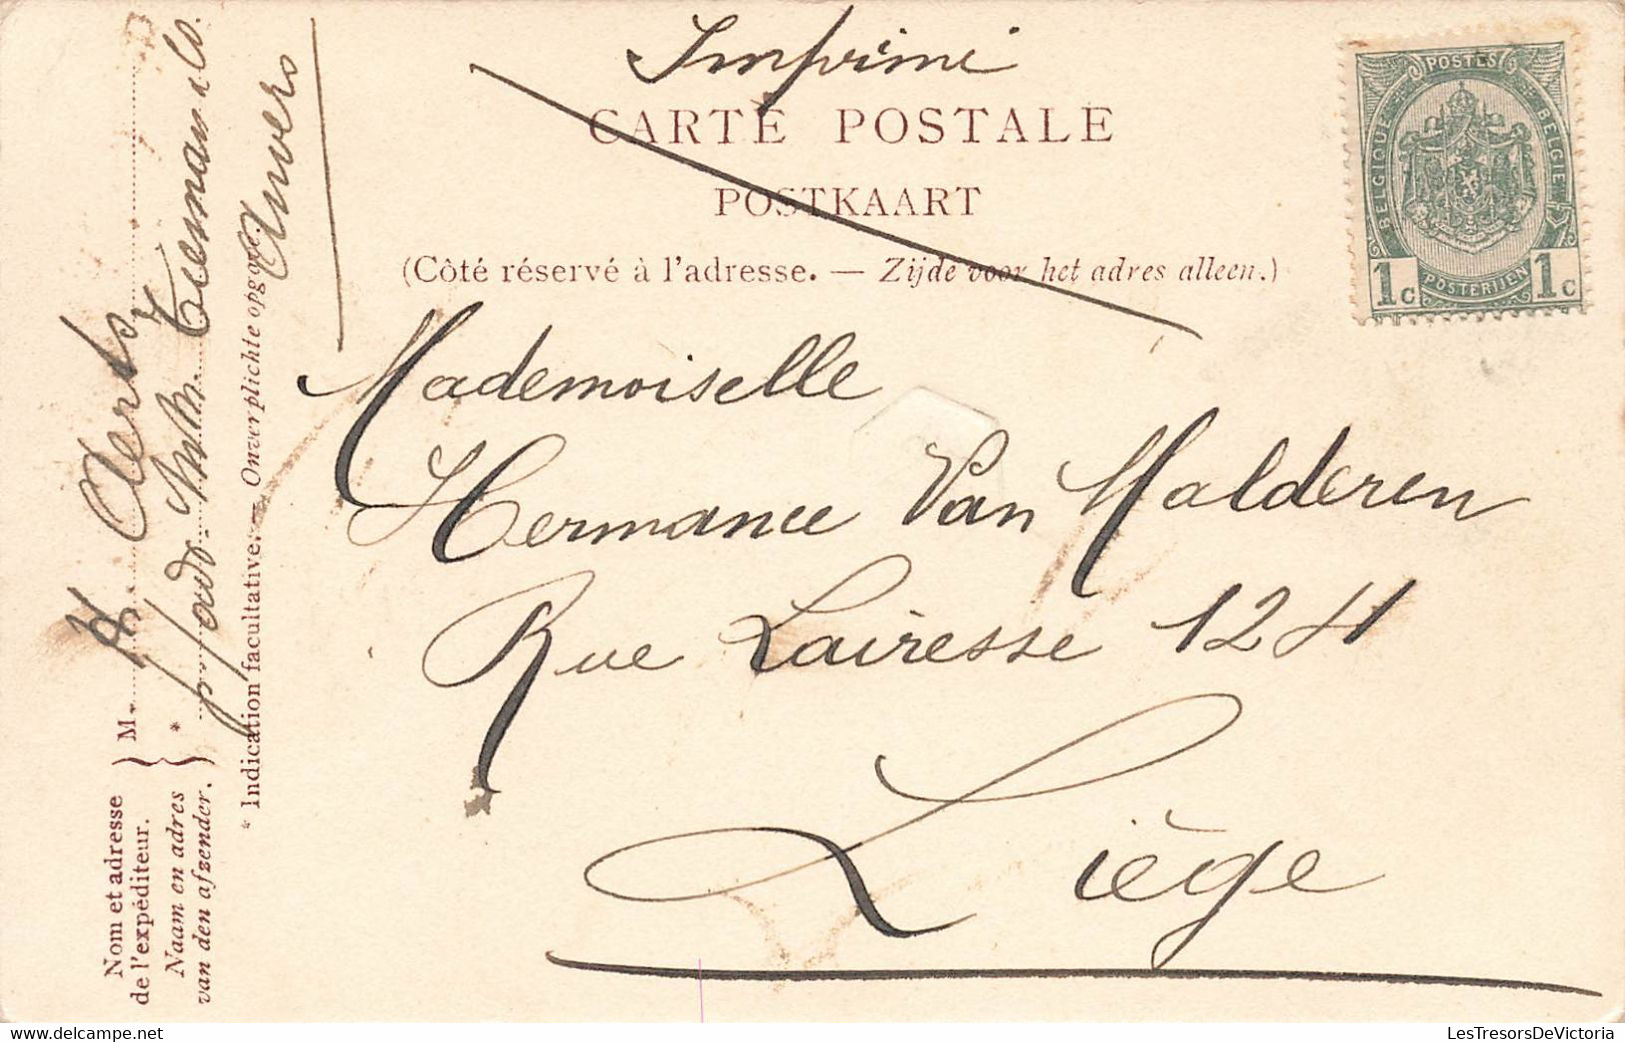 Imprimé
CARTE POSTALE
POSTKAART
(Côté réservé à l'adresse. — Zijde voor het adres alleen.)
POSTES
BELGIQUE
BELGIË
1c
POSTERIJEN
1c
Mademoiselle
Hermance Van Malderen
Rue Lairesse 124
Liège
Nom et adresse
de l'expéditeur.
Naam en adres
van den afzender.
M. H. Aerts,
* Tiesmans & Co.
Anvers
* Indication facultative. — Onverplichte opgave.
LesTresorsDeVictoria